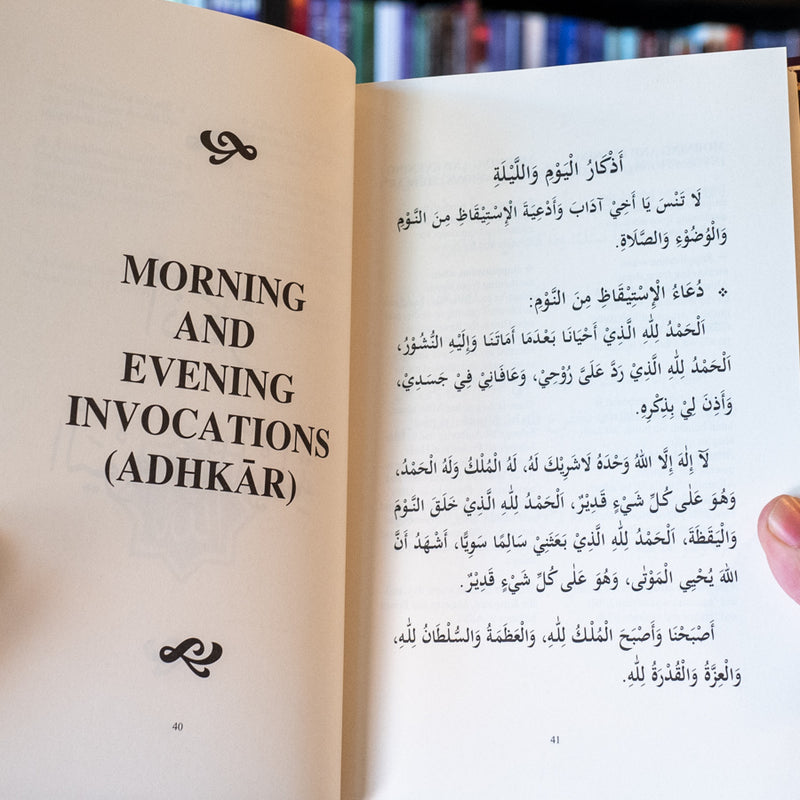 MORNING
AND
EVENING
INVOCATIONS
(ADHKĀR)
40
أَذْكَارُ الْيَوْمِ وَاللَّيْلَةِ
لَا تَنْسَ يَا أَخِيْ آدَابَ وَأَدْعِيَةَ الْإِسْتِيْقَاظِ مِنَ النَّوْمِ
وَالْوُضُوْءِ وَالصَّلَاةِ.
❖ دُعَاءُ الْإِسْتِيْقَاظِ مِنَ النَّوْمِ:
اَلْحَمْدُ لِلّٰهِ الَّذِيْ أَحْيَانَا بَعْدَمَا أَمَاتَنَا وَإِلَيْهِ النُّشُوْرُ،
اَلْحَمْدُ لِلّٰهِ الَّذِيْ رَدَّ عَلَىَّ رُوْحِيْ، وَعَافَانِيْ فِيْ جَسَدِيْ،
وَأَذِنَ لِيْ بِذِكْرِهِ.
لَآ إِلٰهَ إِلَّا اللهُ وَحْدَهُ لَاشَرِيْكَ لَهُ، لَهُ الْمُلْكُ وَلَهُ الْحَمْدُ،
وَهُوَ عَلٰى كُلِّ شَيْءٍ قَدِيْرٌ، اَلْحَمْدُ لِلّٰهِ الَّذِيْ خَلَقَ النَّوْمَ
وَالْيَقَظَةَ، اَلْحَمْدُ لِلّٰهِ الَّذِيْ بَعَثَنِيْ سَالِمًا سَوِيًّا، أَشْهَدُ أَنَّ
اللهَ يُحْيِي الْمَوْتٰى، وَهُوَ عَلٰى كُلِّ شَيْءٍ قَدِيْرٌ.
أَصْبَحْنَا وَأَصْبَحَ الْمُلْكُ لِلّٰهِ، وَالْعَظَمَةُ وَالسُّلْطَانُ لِلّٰهِ،
وَالْعِزَّةُ وَالْقُدْرَةُ لِلّٰهِ.
41